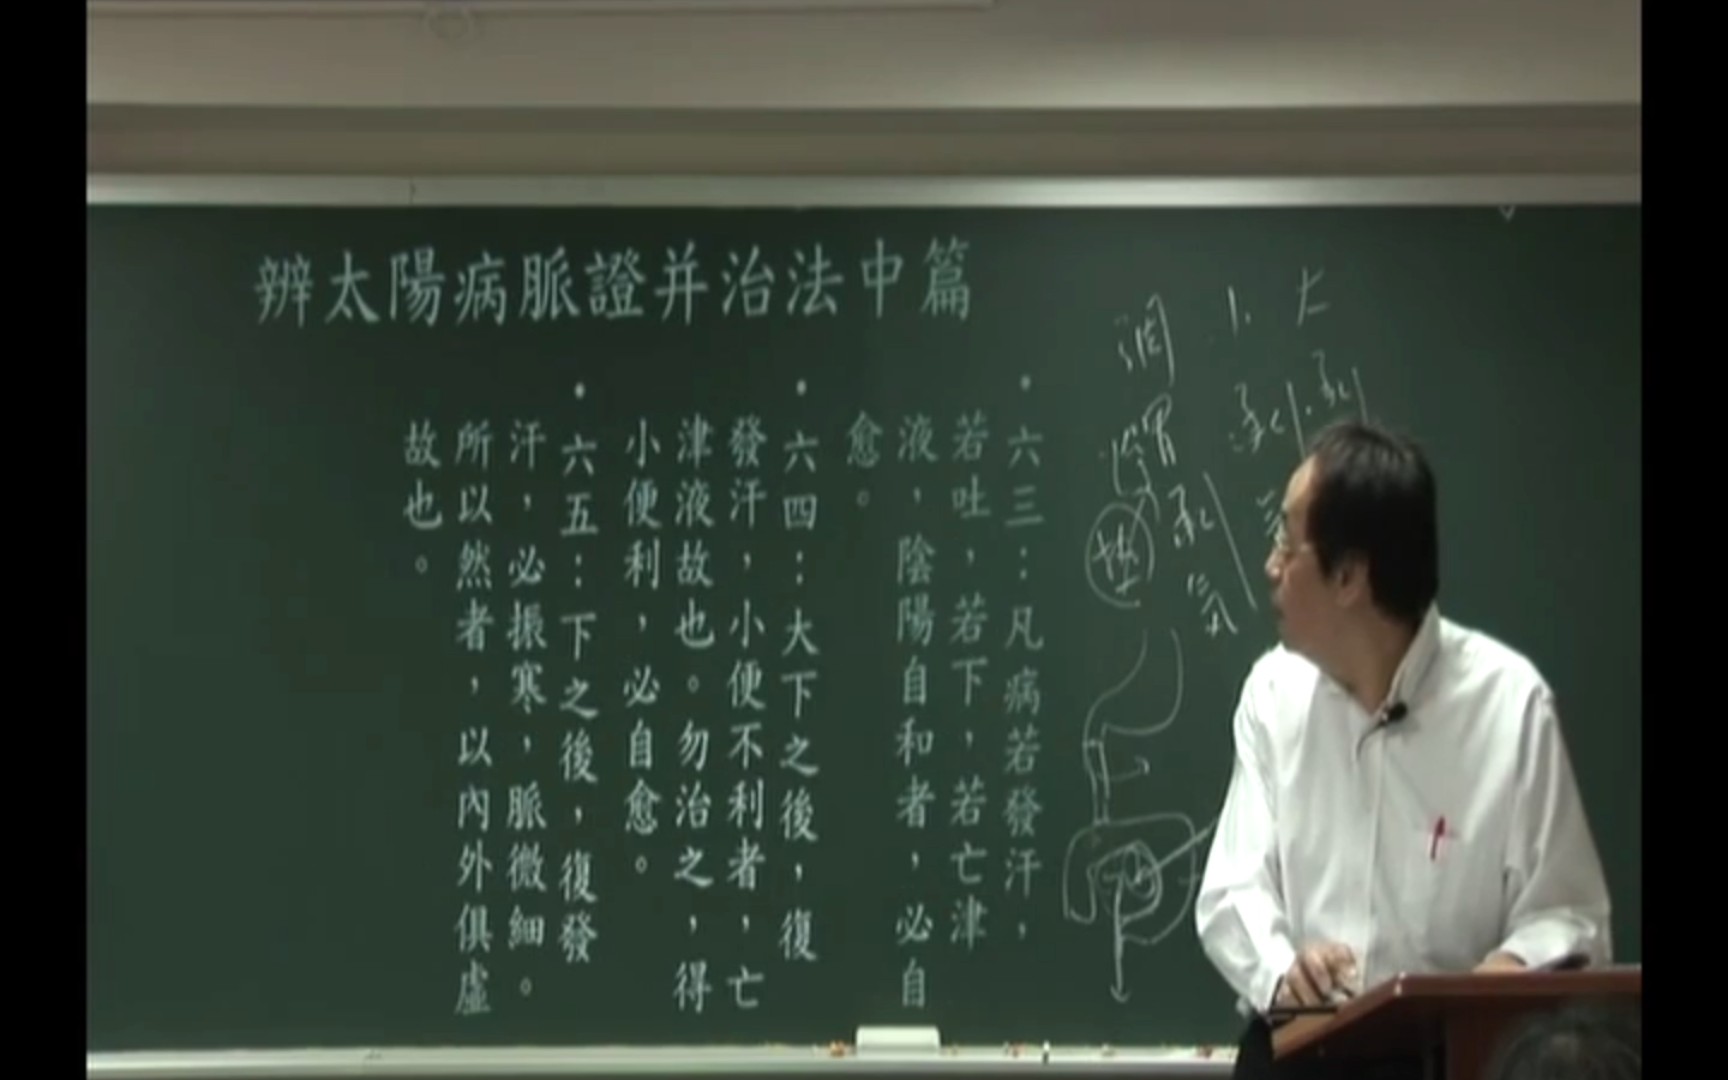 辨太陽病脈證并治法中篇
• 六三：凡病若發汗，
若吐，若下，若亡津
液，陰陽自和者，必自
愈。
• 六四：大下之後，復
發汗，小便不利者，亡
津液故也。勿治之，得
小便利，必自愈。
• 六五：下之後，復發
汗，必振寒，脈微細。
所以然者，以內外俱虛
故也。
大承
小承
調胃承氣